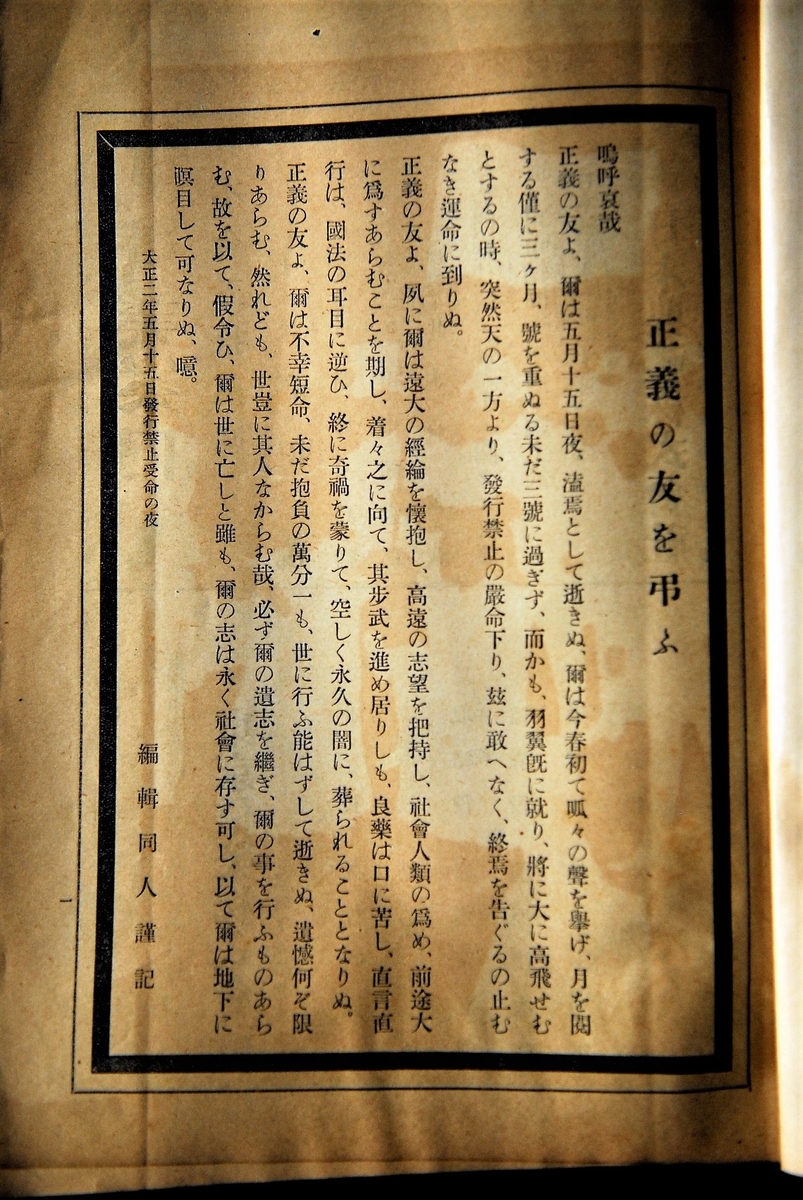 正義の友を弔ふ
嗚呼哀哉
正義の友よ、爾は五月十五日夜、溘焉として逝きぬ、爾は今春初て呱々の聲を擧げ、月を閲
する僅に三ヶ月、號を重ぬる未だ三號に過ぎず、而かも、羽翼旣に就り、將に大に高飛せむ
とするの時、突然天の一方より、發行禁止の嚴命下り、玆に敢へなく、終焉を告ぐるの止む
なき運命に到りぬ。
正義の友よ、夙に爾は遠大の經綸を懷抱し、高遠の志望を把持し、社會人類の爲め、前途大
に爲すあらむことを期し、着々之に向て、其步武を進め居りしも、良藥は口に苦し、直言直
行は、國法の耳目に逆ひ、終に奇禍を蒙りて、空しく永久の闇に、葬られることとなりぬ。
正義の友よ、爾は不幸短命、未だ抱負の萬分一も、世に行ふ能はずして逝きぬ、遺憾何ぞ限
りあらむ、然れども、世豈に其人なからむ哉、必ず爾の遺志を繼ぎ、爾の事を行ふものあら
む、故を以て、假令ひ、爾は世に亡しと雖も、爾の志は永く社會に存す可し、以て爾は地下に
瞑目して可なりぬ、噫。
大正二年五月十五日發行禁止受命の夜
編輯同人謹記